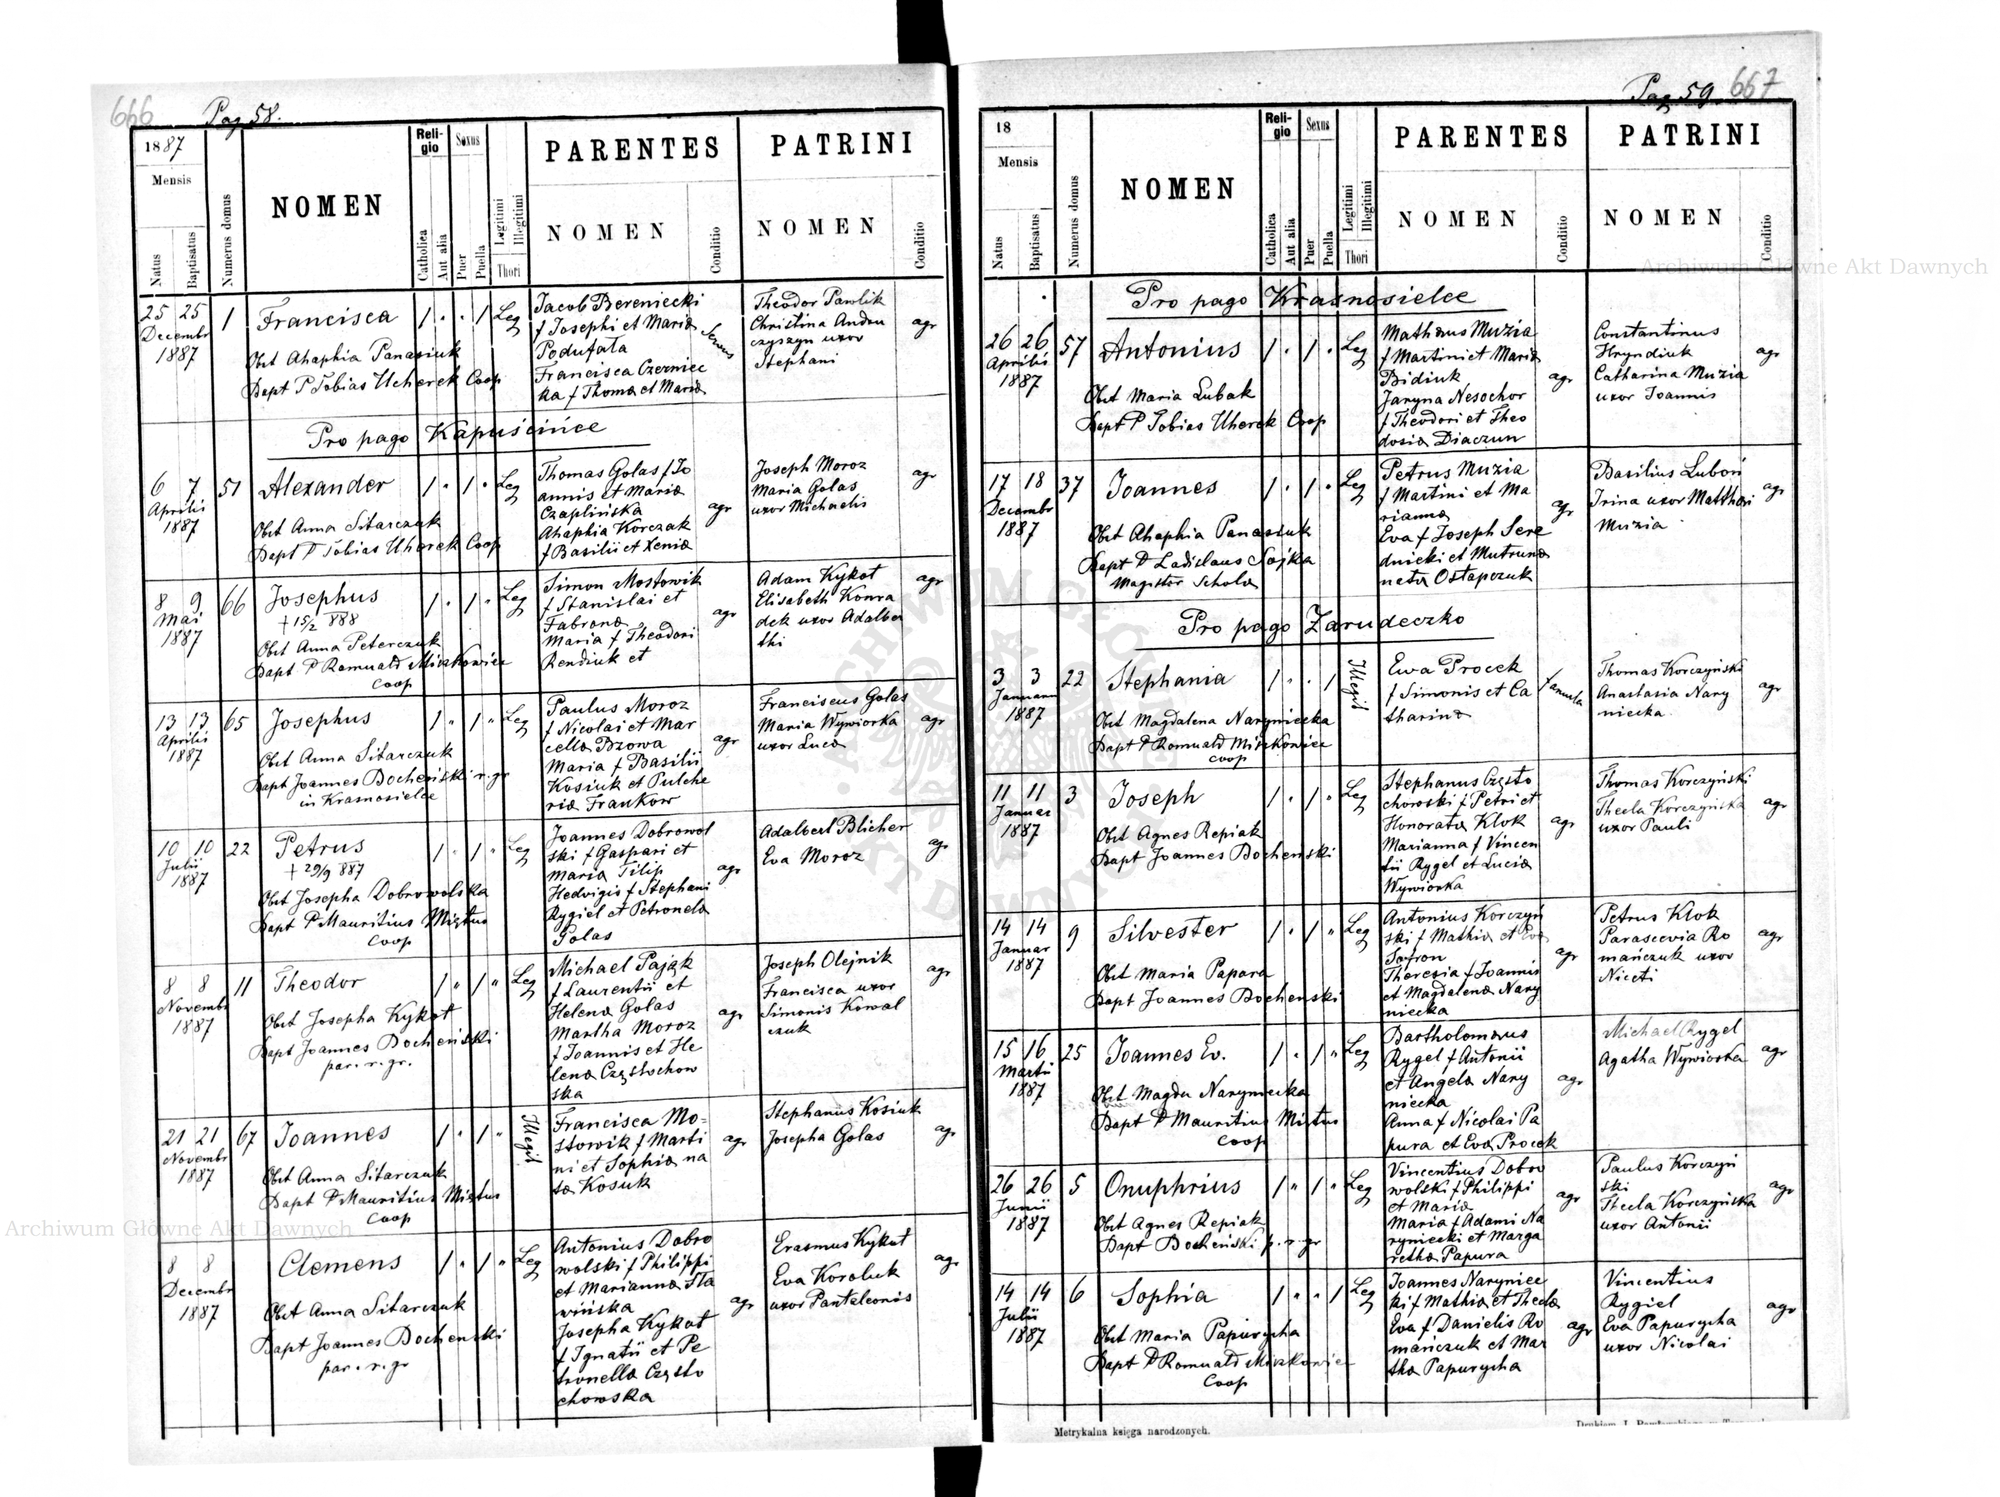 666 Pag 58.
1887
Mensis
Natus
Baptisatus
Numerus domus
NOMEN
Religio
Catholica
Aut alia
Sexus
Puer
Puella
Legitimi
Illegitimi
Thori
PARENTES
NOMEN
Conditio
PATRINI
NOMEN
Conditio
25 25 Decembr 1887
1
Francisca
Obst Ahaphia Panasiuk
Bapt P Tobias Ucherek Coop
Leg
Jacob Bereniecki
f Josephi et Maria
Podufata
Francisca Czerniec
ka f Thoma et Maria
Servus
Theodor Pawlik
Christina Andru
czyszyn uxor
Stephani
agr
Pro pago Kapuścińce
6 7 Aprilis 1887
51
Alexander
Obst Anna Sitarczuk
Bapt P Tobias Uherek Coop
Leg
Thomas Golas f Jo
annis et Maria
Czaplińska
Ahaphia Korczak
f Basilii et Xenia
agr
Joseph Moroz
Maria Golas
uxor Michaelis
agr
8 9 Mai 1887
66
Josephus
+ 15/2 888
Obst Anna Peterczuk
Bapt P Romuald Miszkowicz
Coop
Leg
Simon Mostowik
f Stanislai et
Fabrona
Maria f Theodori
Rendiuk et
agr
Adam Kykot
Elisabeth Konra
dek uxor Adalber
thi
agr
13 13 Aprilis 1887
65
Josephus
Obst Anna Sitarczuk
Bapt Joannes Bocheński r. gr
in Krasnosielce
Leg
Paulus Moroz
f Nicolai et Mar
cella Bzowa
Maria f Basilii
Kosiuk et Pulche
ria Frankow
agr
Franciscus Golas
Maria Wywiorka
uxor Luca
agr
10 10 Julii 1887
22
Petrus
+ 29/9 887
Obst Josepha Dobrowolska
Bapt P Mauritius Miztus
Coop
Leg
Joannes Dobrowol
ski f Gaspari et
Maria Filip
Hedvigis f Stephani
Rygiel et Petronela
Golas
agr
Adalbert Blicher
Eva Moroz
agr
8 8 Novembr 1887
11
Theodor
Obst Josepha Kykot
Bapt Joannes Bocheński
par. r. gr.
Leg
Michael Pająk
f Laurentii et
Helena Golas
Martha Moroz
f Joannis et He
lena Częstochow
ska
agr
Joseph Olejnik
Francisca uxor
Simonis Kowal
czuk
agr
21 21 Novembr 1887
67
Joannes
Obst Anna Sitarczuk
Bapt P Mauritius Miztus
Coop
Illegit
Francisca Mo-
stowik f Marti
ni et Sophia na
ta Kosiuk
agr
Stephanus Kosiuk
Josepha Golas
agr
8 8 Decembr 1887
Clemens
Obst Anna Sitarczuk
Bapt Joannes Bochenski
par. r. gr
Leg
Antonius Dobro
wolski f Philippi
et Marianna Sła
wińska
Josepha Kykot
f Ignatii et Pe
tronella Często
chowska
agr
Erasmus Kykot
Eva Koroluk
uxor Pantaleonis
agr
Pag 59. 667
18
Mensis
Natus
Baptisatus
Numerus domus
NOMEN
Religio
Catholica
Aut alia
Sexus
Puer
Puella
Legitimi
Illegitimi
Thori
PARENTES
NOMEN
Conditio
PATRINI
NOMEN
Conditio
Pro pago Krasnosielce
26 26 Aprilis 1887
57
Antonius
Obst Maria Lubak
Bapt P Tobias Uherek Coop
Leg
Mathaus Muzia
f Martini et Maria
Bidiuk
Jaryna Nesochor
f Theodori et Theo
dosia Diaczun
agr
Constantinus
Hryndiuk
Catharina Muzia
uxor Joannis
agr
17 18 Decembr 1887
37
Joannes
Obst Ahaphia Panasiuk
Bapt P Ladislaus Sojka
Magister Schola
Leg
Petrus Muzia
f Martini et Ma
rianna
Eva f Joseph Sere
dnicki et Mutruna
nata Ostapczuk
agr
Basilius Luboń
Irina uxor Matthai
Muzia
agr
Pro pago Zarudeczko
3 3 Januarii 1887
22
Stephania
Obst Magdalena Naryniecka
Bapt P Romuald Miszkowicz
coop
Illegit
Ewa Procek
f Simonis et Ca
tharina
famula
Thomas Korczyński
Anastasia Nary
niecka
agr
11 11 Januar 1887
3
Joseph
Obst Agnes Repiak
Bapt Joannes Bochenski
Leg
Stephanus Często
chowski f Petri et
Honorata Klok
Marianna f Vincen
tii Rygel et Lucia
Wywiorka
agr
Thomas Korczyński
Thecla Korczyńska
uxor Pauli
agr
14 14 Januar 1887
9
Silvester
Obst Maria Papara
Bapt Joannes Bochenski
Leg
Antonius Korczyń
ski f Mathia et Eva
Safron
Theresia f Joannis
et Magdalena Nary
niecka
agr
Petrus Klok
Parascevia Ro
mańczuk uxor
Niceti
agr
15 16 Martii 1887
25
Joannes Ev.
Obst Magda Naryniecka
Bapt P Mauritius Miztus
Coop
Leg
Bartholomaus
Rygel f Antonii
et Angela Nary
niecka
Anna f Nicolai Pa
pura et Eva Procek
agr
Michael Rygel
Agatha Wywiorka
agr
26 26 Junii 1887
5
Onuphrius
Obst Agnes Repiak
Bapt Bocheński p. r. gr
Leg
Vincentius Dobro
wolski f Philippi
et Maria
Maria f Adami Na
ryniecki et Marga
retha Papura
agr
Paulus Korczyń
ski
Thecla Korczyńska
uxor Antonii
agr
14 14 Julii 1887
6
Sophia
Obst Maria Papurycha
Bapt P Romuald Miszkowicz
Coop
Leg
Joannes Naryniec
ki f Mathia et Thecla
Eva f Danielis Ro
mańczuk et Mar
tha Papurycha
agr
Vincentius
Rygiel
Eva Papurycha
uxor Nicolai
agr
Metrykalna księga narodzonych.
Archiwum Główne Akt Dawnych
Archiwum Główne Akt Dawnych
ARCHIWUM GŁÓWNE AKT DAWNYCH